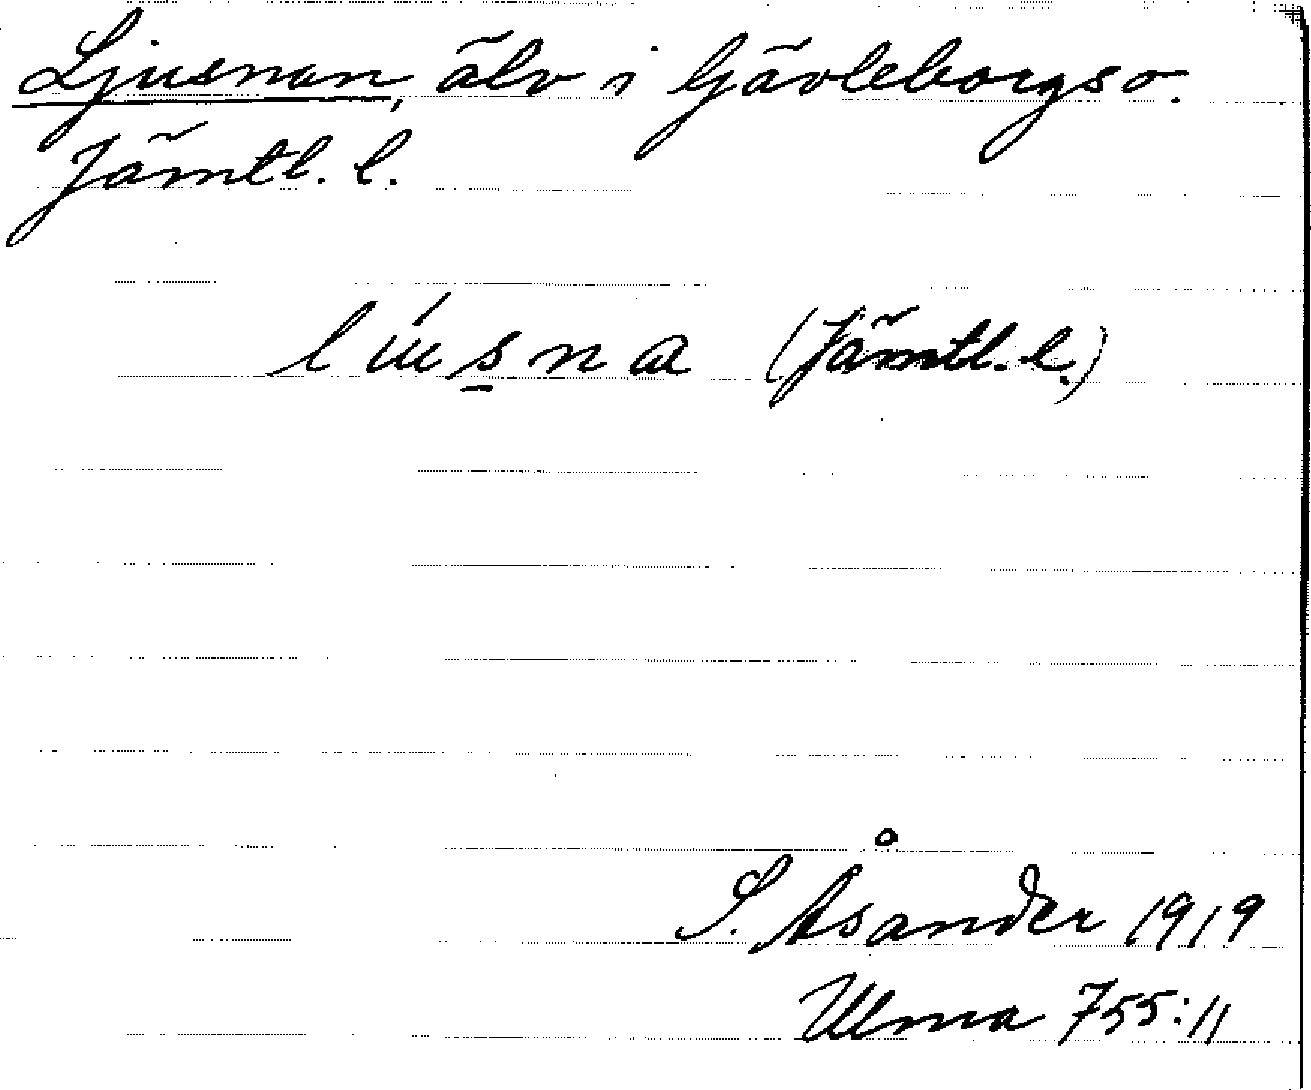 Ljusnan, älv i Gävleborgs o.
Jämtl. l.
lúsna (Jämtl. l.)
S. Åsander 1919
Ulma 755:11